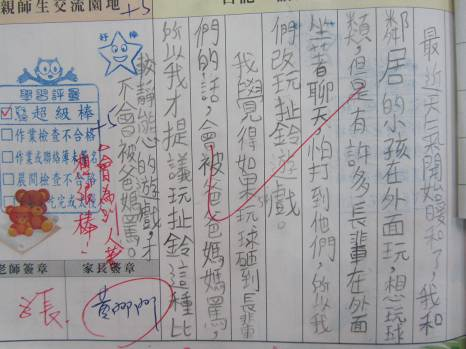 親師生交流園地
最近天氣開始暖和了,我和
鄰居的小孩在外面玩,想玩球
類,但是有許多長輩在外面
坐著聊天,怕打到他們,所以我
們改玩扯鈴遊戲。
我覺得如果玩球砸到長輩
們的話,會被爸爸媽媽罵,
所以我才提議玩扯鈴這種比
較靜態的遊戲才
不會被爸媽罵。
+5
好棒
學習評量
超級棒
作業檢查不合格
晨間檢查不合格
+5
會為別人著
棒!
老師簽章
家長簽章